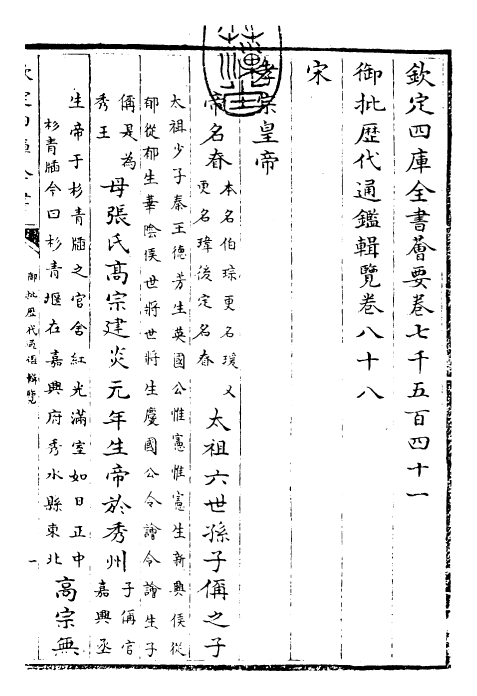 欽定四庫全書薈要卷七千五百四十一
御批歴代通鑑輯覽卷八十八
宋
孝宗皇帝
帝名眘
本名伯琮更名瑗又
更名瑋後定名眘
太祖六世孫子偁之子
太祖少子秦王德芳生英國公惟憲惟憲生新興侯從
郁從郁生華陰侯世將世將生慶國公令譮令譮生子
偁是為
秀王
母張氏髙宗建炎元年生帝於秀州
子偁官
嘉興丞
生帝于杉青牐之官舍紅光滿室如日正中
杉青牐今曰杉青堰在嘉興府秀水縣東北
髙宗無
御批歷代通鑑輯覽
一